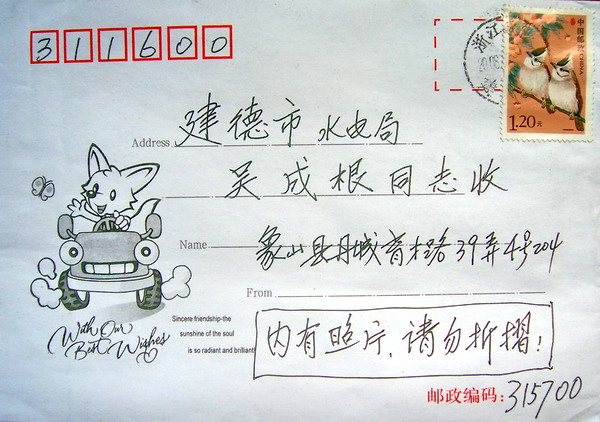 311600
中国邮政 CHINA
1.20元
浙江
Address 建德市水电局
吴成根同志收
Name 象山县丹城育才路39弄4号204
From
With Our Best Wishes
Sincere friendship-the
sunshine of the soul
is so radiant and brilliant
内有照片,请勿折摺!
邮政编码:315700